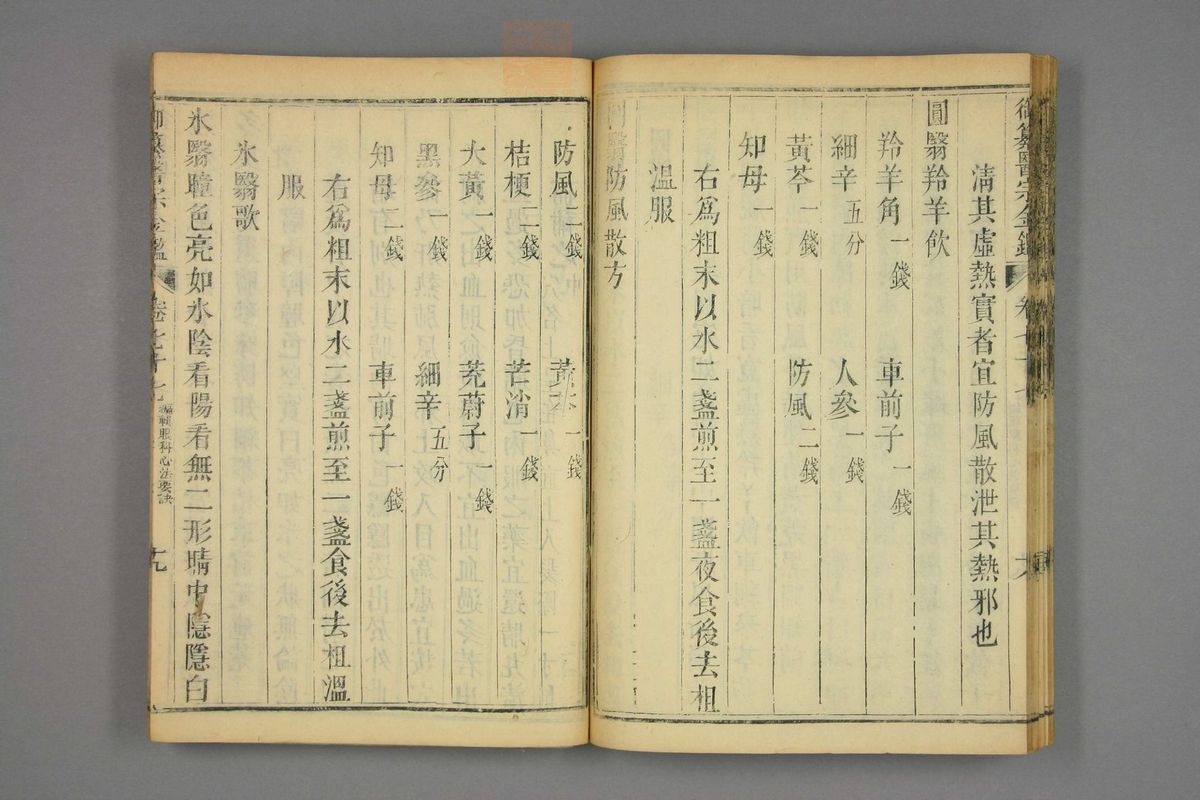 御纂醫宗金鑑 卷七十七
清其虛熱實者宜防風散泄其熱邪也
圓翳羚羊飲
羚羊角一錢 車前子一錢
細辛五分 人參一錢
黃芩一錢 防風二錢
知母一錢
右爲粗末以水二盞煎至一盞夜食後去柤
溫服
圓翳防風散方
防風二錢 黃芩一錢
桔梗二錢 芒消一錢
大黃一錢 茺蔚子一錢
黑參一錢 細辛五分
知母二錢 車前子一錢
右爲粗末以水二盞煎至一盞食後去柤溫
服
氷翳歌
氷翳瞳色亮如氷陰看陽看無二形睛中隱隱白
御纂醫宗金鑑 卷七十七 編輯眼科心法要訣 十九